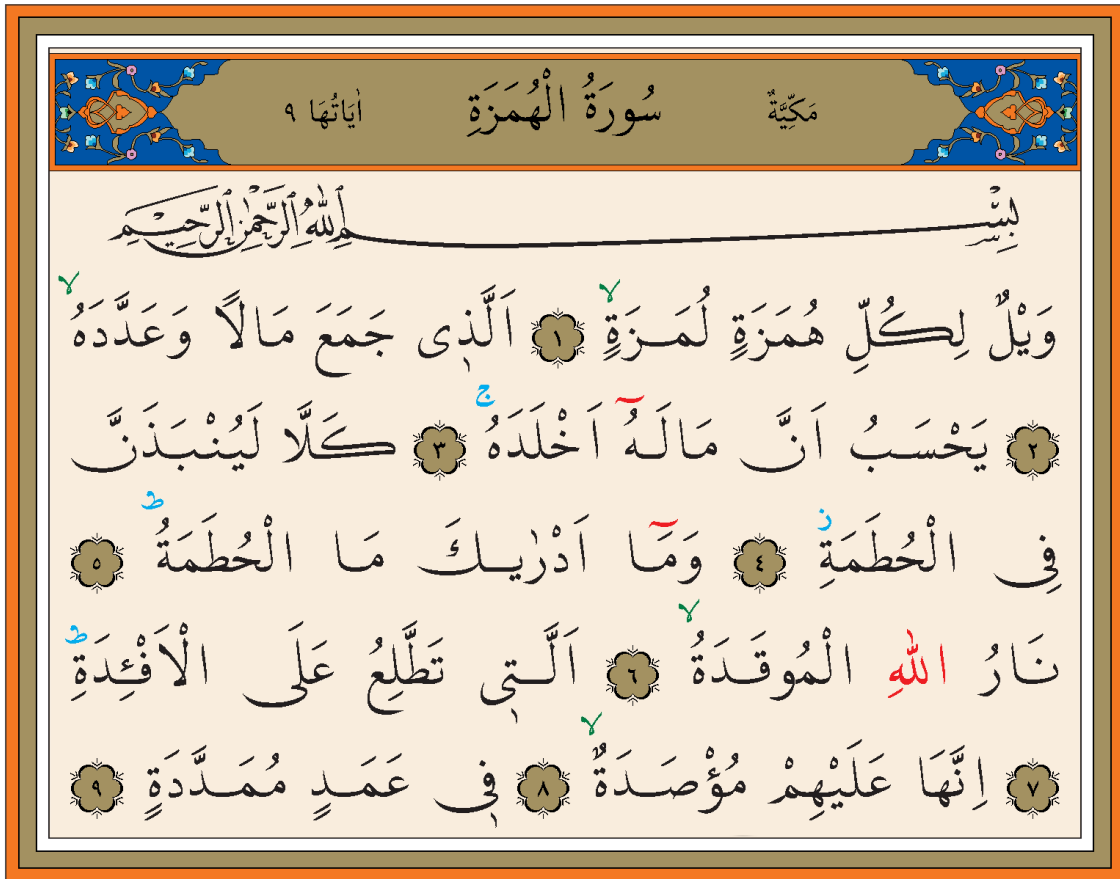 مَكِّيَّةٌ سُورَةُ الْهُمَزَةِ اٰيَاتُهَا ٩
بِسْمِ اللّٰهِ الرَّحْمٰنِ الرَّحِيمِ
وَيْلٌ لِكُلِّ هُمَزَةٍ لُمَزَةٍۙ ١ اَلَّذ۪ى جَمَعَ مَالًا وَعَدَّدَهُۙ
٢ يَحْسَبُ اَنَّ مَالَهُٓ اَخْلَدَهُۚ ٣ كَلَّا لَيُنْبَذَنَّ
فِى الْحُطَمَةِۘ ٤ وَمَٓا اَدْرٰيكَ مَا الْحُطَمَةُۜ ٥
نَارُ اللّٰهِ الْمُوقَدَةُۙ ٦ اَلَّت۪ى تَطَّلِعُ عَلَى الْاَفْـِٔدَةِۜ
٧ اِنَّهَا عَلَيْهِمْ مُؤْصَدَةٌۙ ٨ ف۪ى عَمَدٍ مُمَدَّدَةٍ ٩